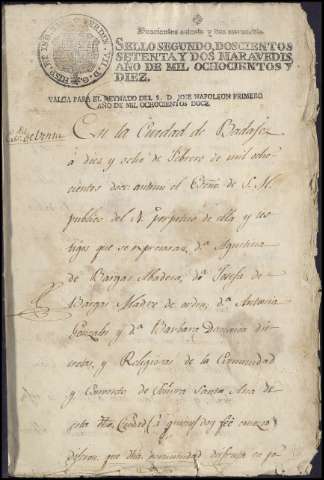 Doscientos setenta y dos maravedis.
SELLO SEGUNDO, DOSCIENTOS
SETENTA Y DOS MARAVEDIS,
AÑO DE MIL OCHOCIENTOS Y
DIEZ.
VALGA PARA EL REYNADO DEL S. D. JOSE NAPOLEON PRIMERO
AÑO DE MIL OCHOCIENTOS DOCE
En la Ciudad de Badajoz
à dies y ocho de Febrero de mil ocho
cientos doce: antemi el Esno de S. M.
publico del Nº perpetuo de ella y tes
tigos que se expresaran Dª Agustina
de Bargas Madera, Dª Teresa de
Vargas Madre de orden, Dª Antonia
Gonzales y Dª Barbara
cretas, y Religiosas de la Comunidad
y Convento de Señora Santa Ana de
esta dha Ciudad (à quienes doy feè conozco)
dixeron: que dha comunidad disfruta en po